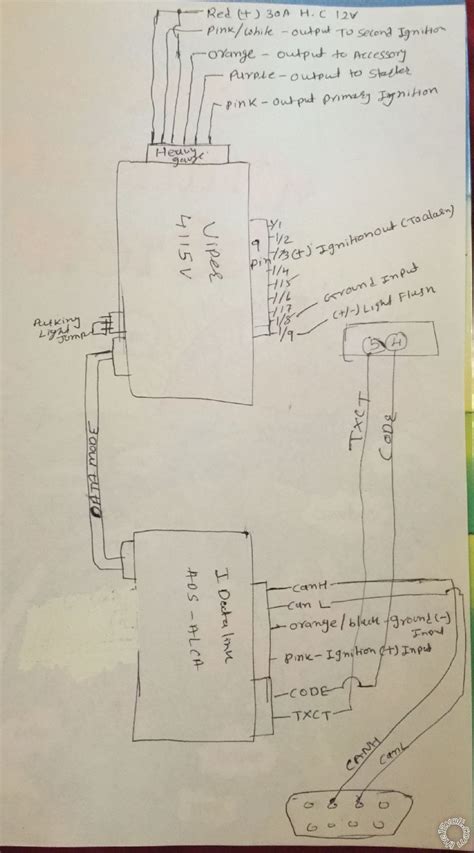 Red (+) 30A H.C 12V
Pink/white - output To Second Ignition
orange - output to Accessory
Purple - output to Starter
Pink - output Primary Ignition
Heavy
gauge
Viper
4115V
9
pin
1/1
1/2
1/3 (+) Ignitionout (To alarm)
1/4
1/5
1/6
1/7
1/8 Ground Input
1/9 (+/-) Light Flash
Parking
Light
Jump
3
4
TXCT
CODE
I Datalink
ADS-ALCA
CanH
Can L
orange/black - ground (-)
Input
Pink - Ignition (+) Input
CODE
TXCT
CANH
CanL